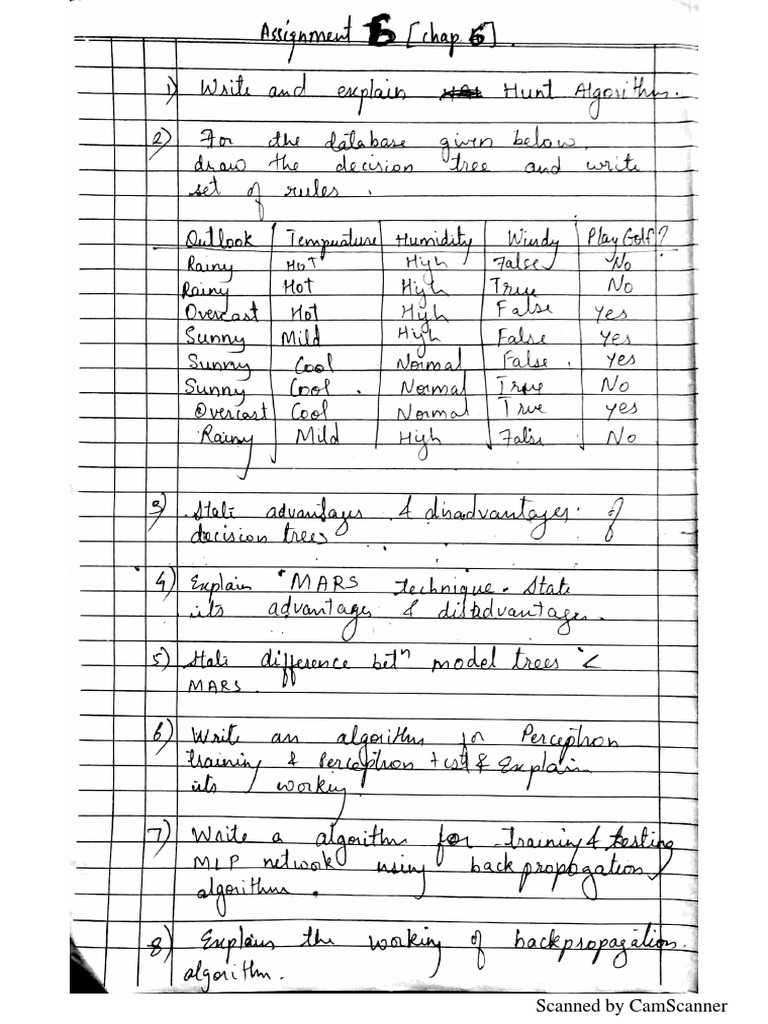 Assignment 6 [chap. 6].
1) Write and explain Hunt Algorithm.
2) For the database given below,
draw the decision tree and write
set of rules.
Outlook Temperature Humidity Windy Play Golf?
Rainy Hot High False No
Rainy Hot High True No
Overcast Hot High False Yes
Sunny Mild High False Yes
Sunny Cool Normal False. Yes
Sunny Cool. Normal True No
Overcast Cool Normal True Yes
Rainy Mild High False No
3) State advantages & disadvantages of
decision trees
4) Explain MARS technique. State
its advantages & disadvantages.
5) State difference betn model trees &
MARS.
6) Write an algorithm for Perceptron
training & Perceptron test & Explain
its working.
7) Write a algorithm for training & testing
MLP network using back propagation
algorithm.
8) Explain the working of backpropagation.
algorithm.
Scanned by CamScanner